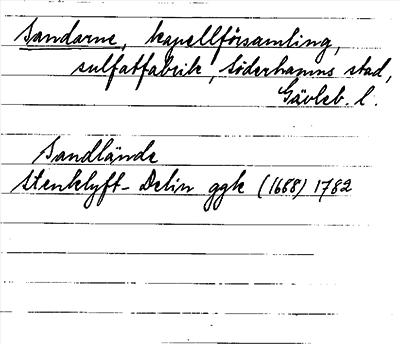 Sandarne, kapellförsamling,
sulfatfabrik, Söderhamns stad,
Gävleb. l.
Sandlände
Stenklyft-Delin ggk (1688) 1782